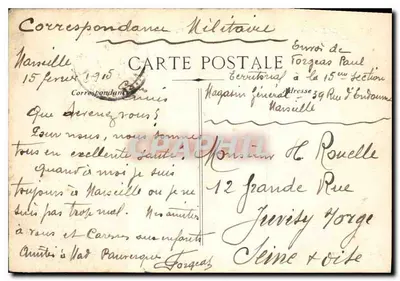 Correspondance Militaire
Marseille
15 fevrier 1915
CARTE POSTALE
Correspondance
Adresse
Envoi de
Forgeas Paul
Territorial à la 15me Section
Magasin Général 39 Rue d'Endoume
Marseille
Amis
Que devenez vous?
Pour nous, nous sommes
tous en excellente santé.
Quand à moi je suis
toujours à Marseille ou je ne
suis pas trop mal. Mes amitiés
à vous et Caresses aux enfants
Amitiés à Mad Pauvergne
Forgeas
Monsieur H Rouelle
12 Grande Rue
Juvisy s orge
Seine & oise